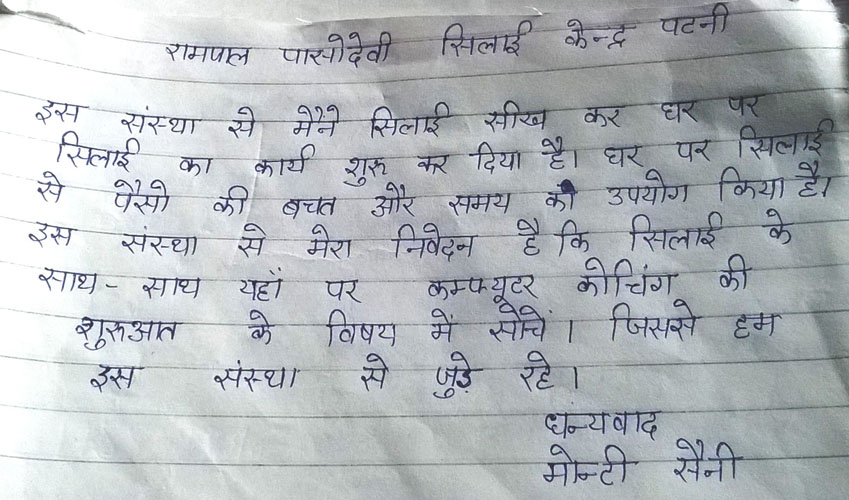 रामपाल पासोदेवी सिलाई केन्द्र पटनी
इस संस्था से मैंने सिलाई सीख कर घर पर
सिलाई का कार्य शुरू कर दिया है। घर पर सिलाई
से पैसो की बचत और समय का उपयोग किया है।
इस संस्था से मेरा निवेदन है कि सिलाई के
साथ - साथ यहाँ पर कम्प्यूटर कोचिंग की
शुरुआत के विषय में सोचें । जिससे हम
इस संस्था से जुड़े रहे ।
धन्यवाद
मोन्टी सैनी